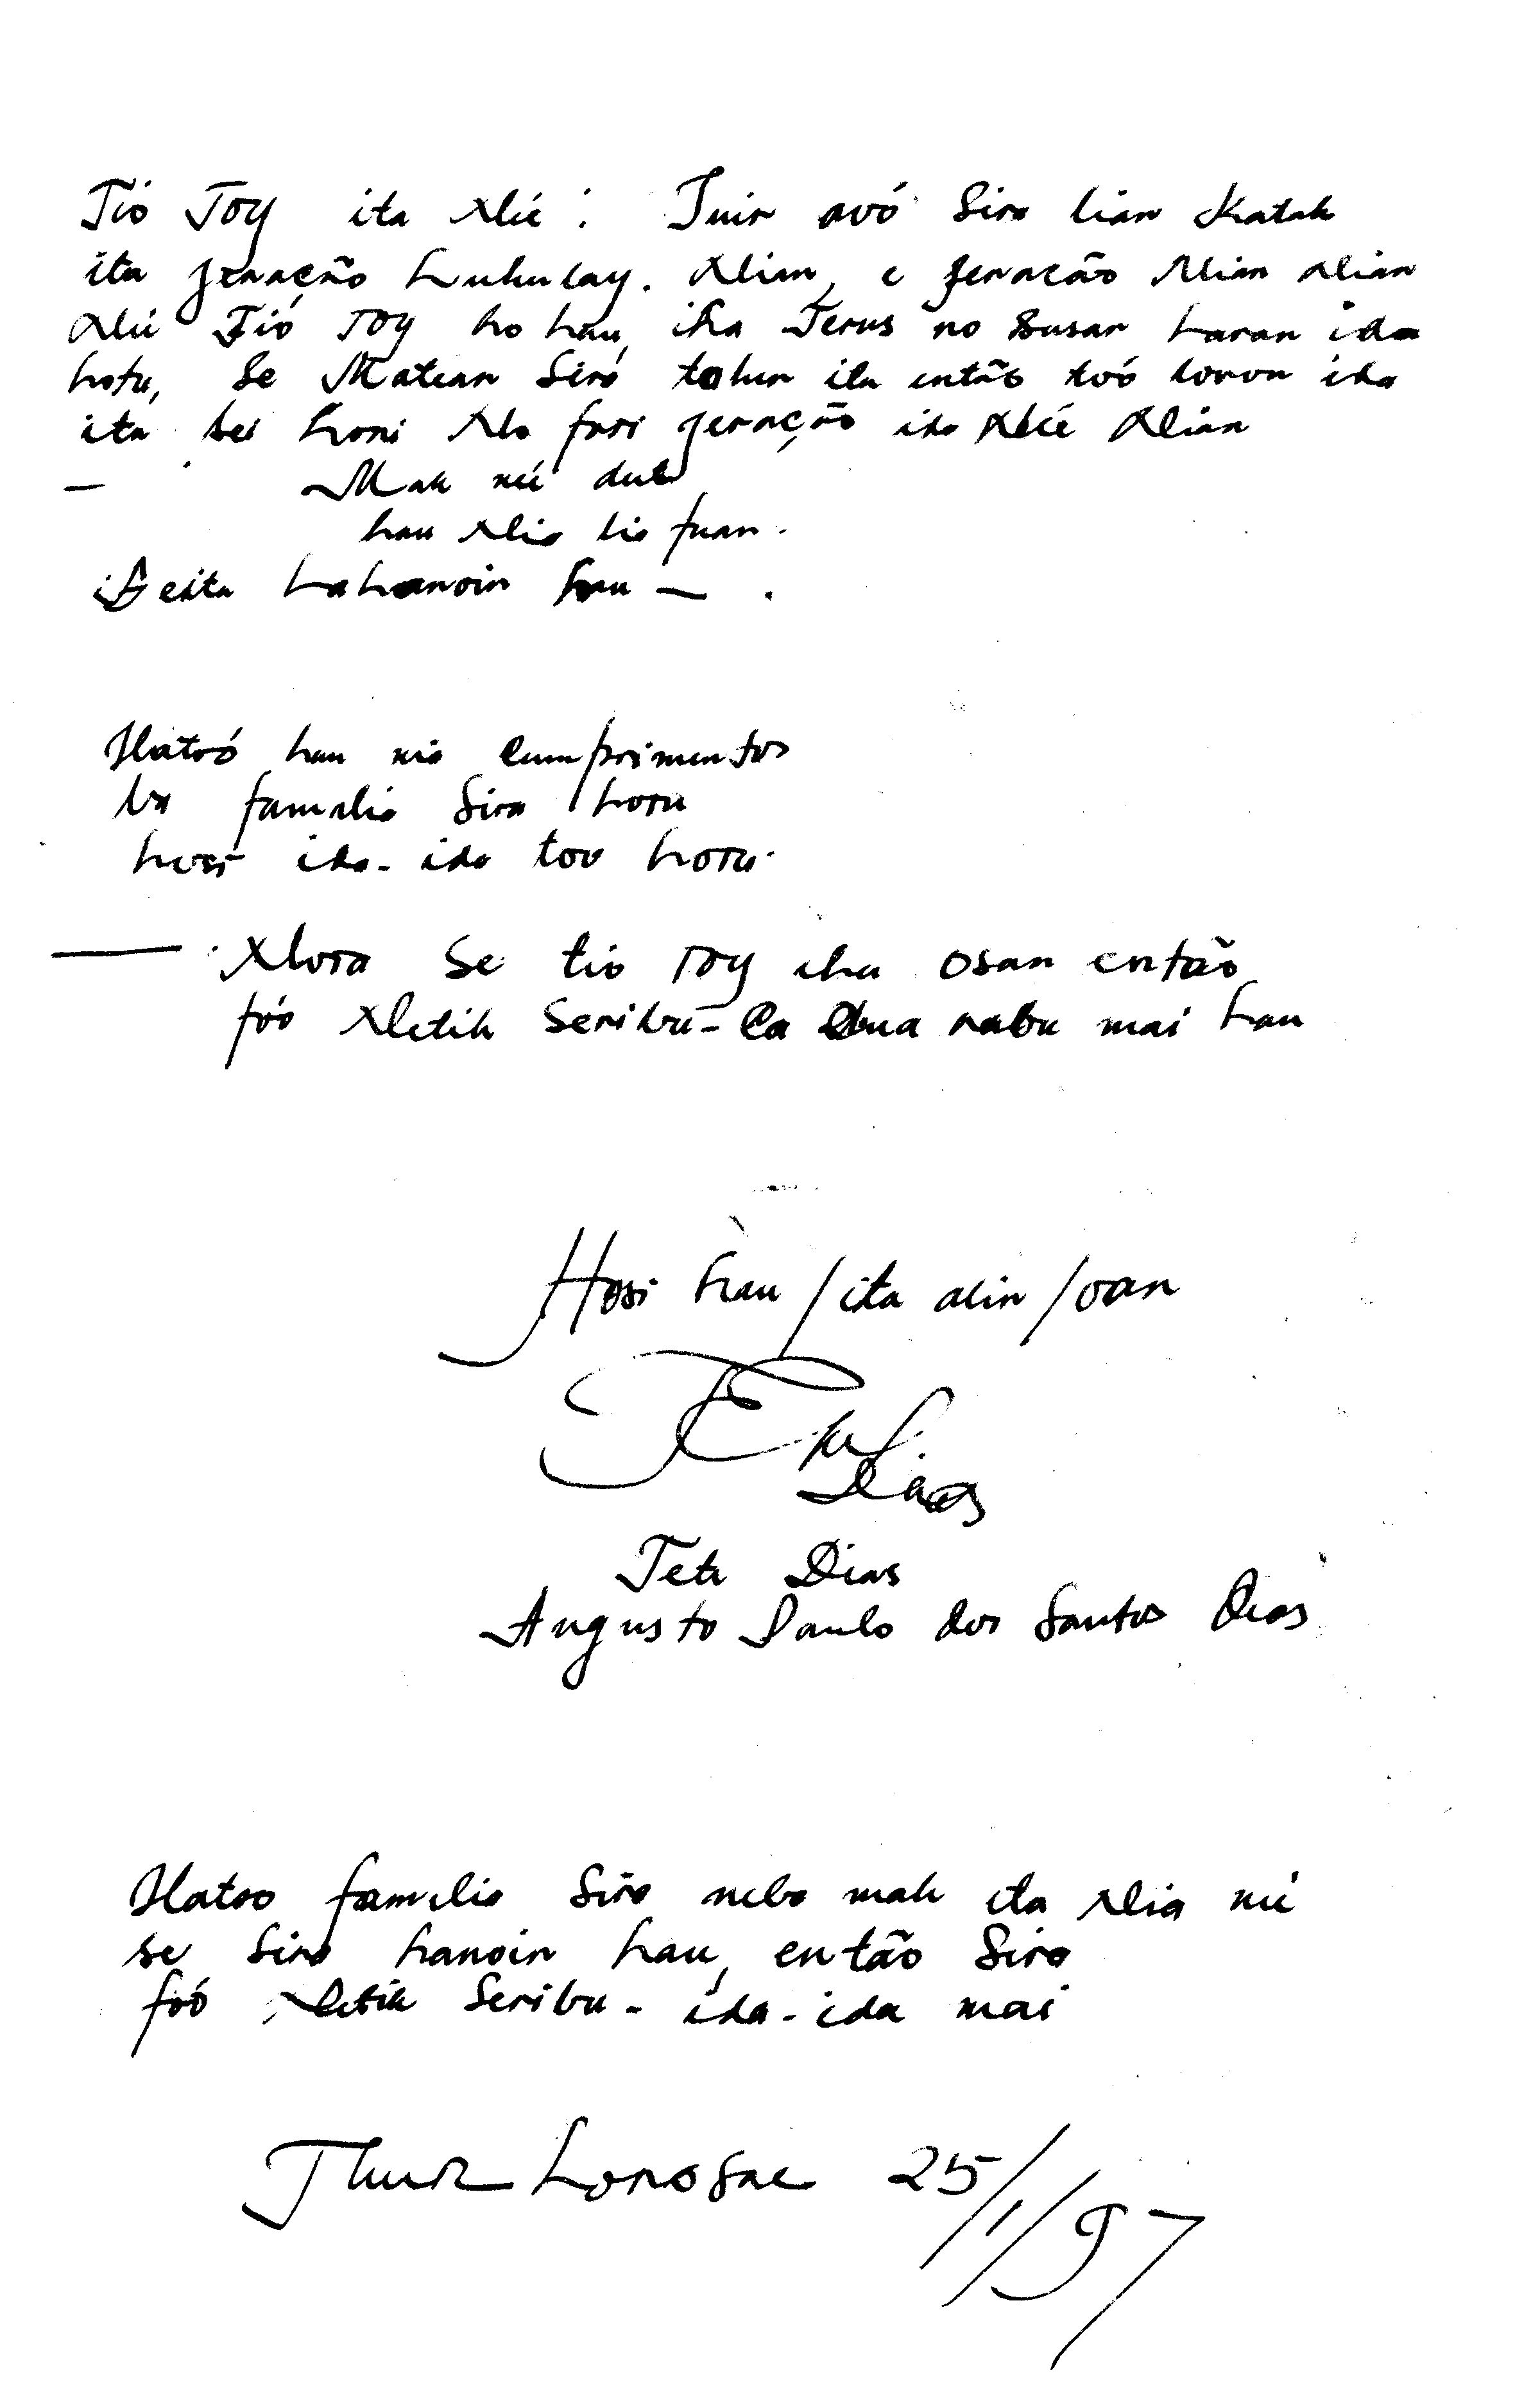 Tio Toy ita nié: Tuir avó Sira lian Katak
ita geração Luhulay. Nian, e geração Nian nian
Nié Tió Toy ho hau, iha Terus no Susar laran ida
hotu, Se Matean Siró tahun ita então toó loron ida
ita sei hori geração ida nié Nian
— Mak né'é deit
hau nia lia fuan.
ita hahanoin hau — .
Hatoó hau nia Cumprimentos
ba familia Sira hotu
hosi ida-ida too hotu.
— Nora Se tio Toy iha osan então
fóó Netik Seribú - mai hau
Hosi hau / ita alin / oan
Dias
Teti Dias
Augusto Paulo dos Santos Dias
Hatoo familia Siro nebe mak ita nia né
se Siro hanoin hau, então Siro
foó Netik Seribu - ida-ida mai
Lorosae 25/1/97